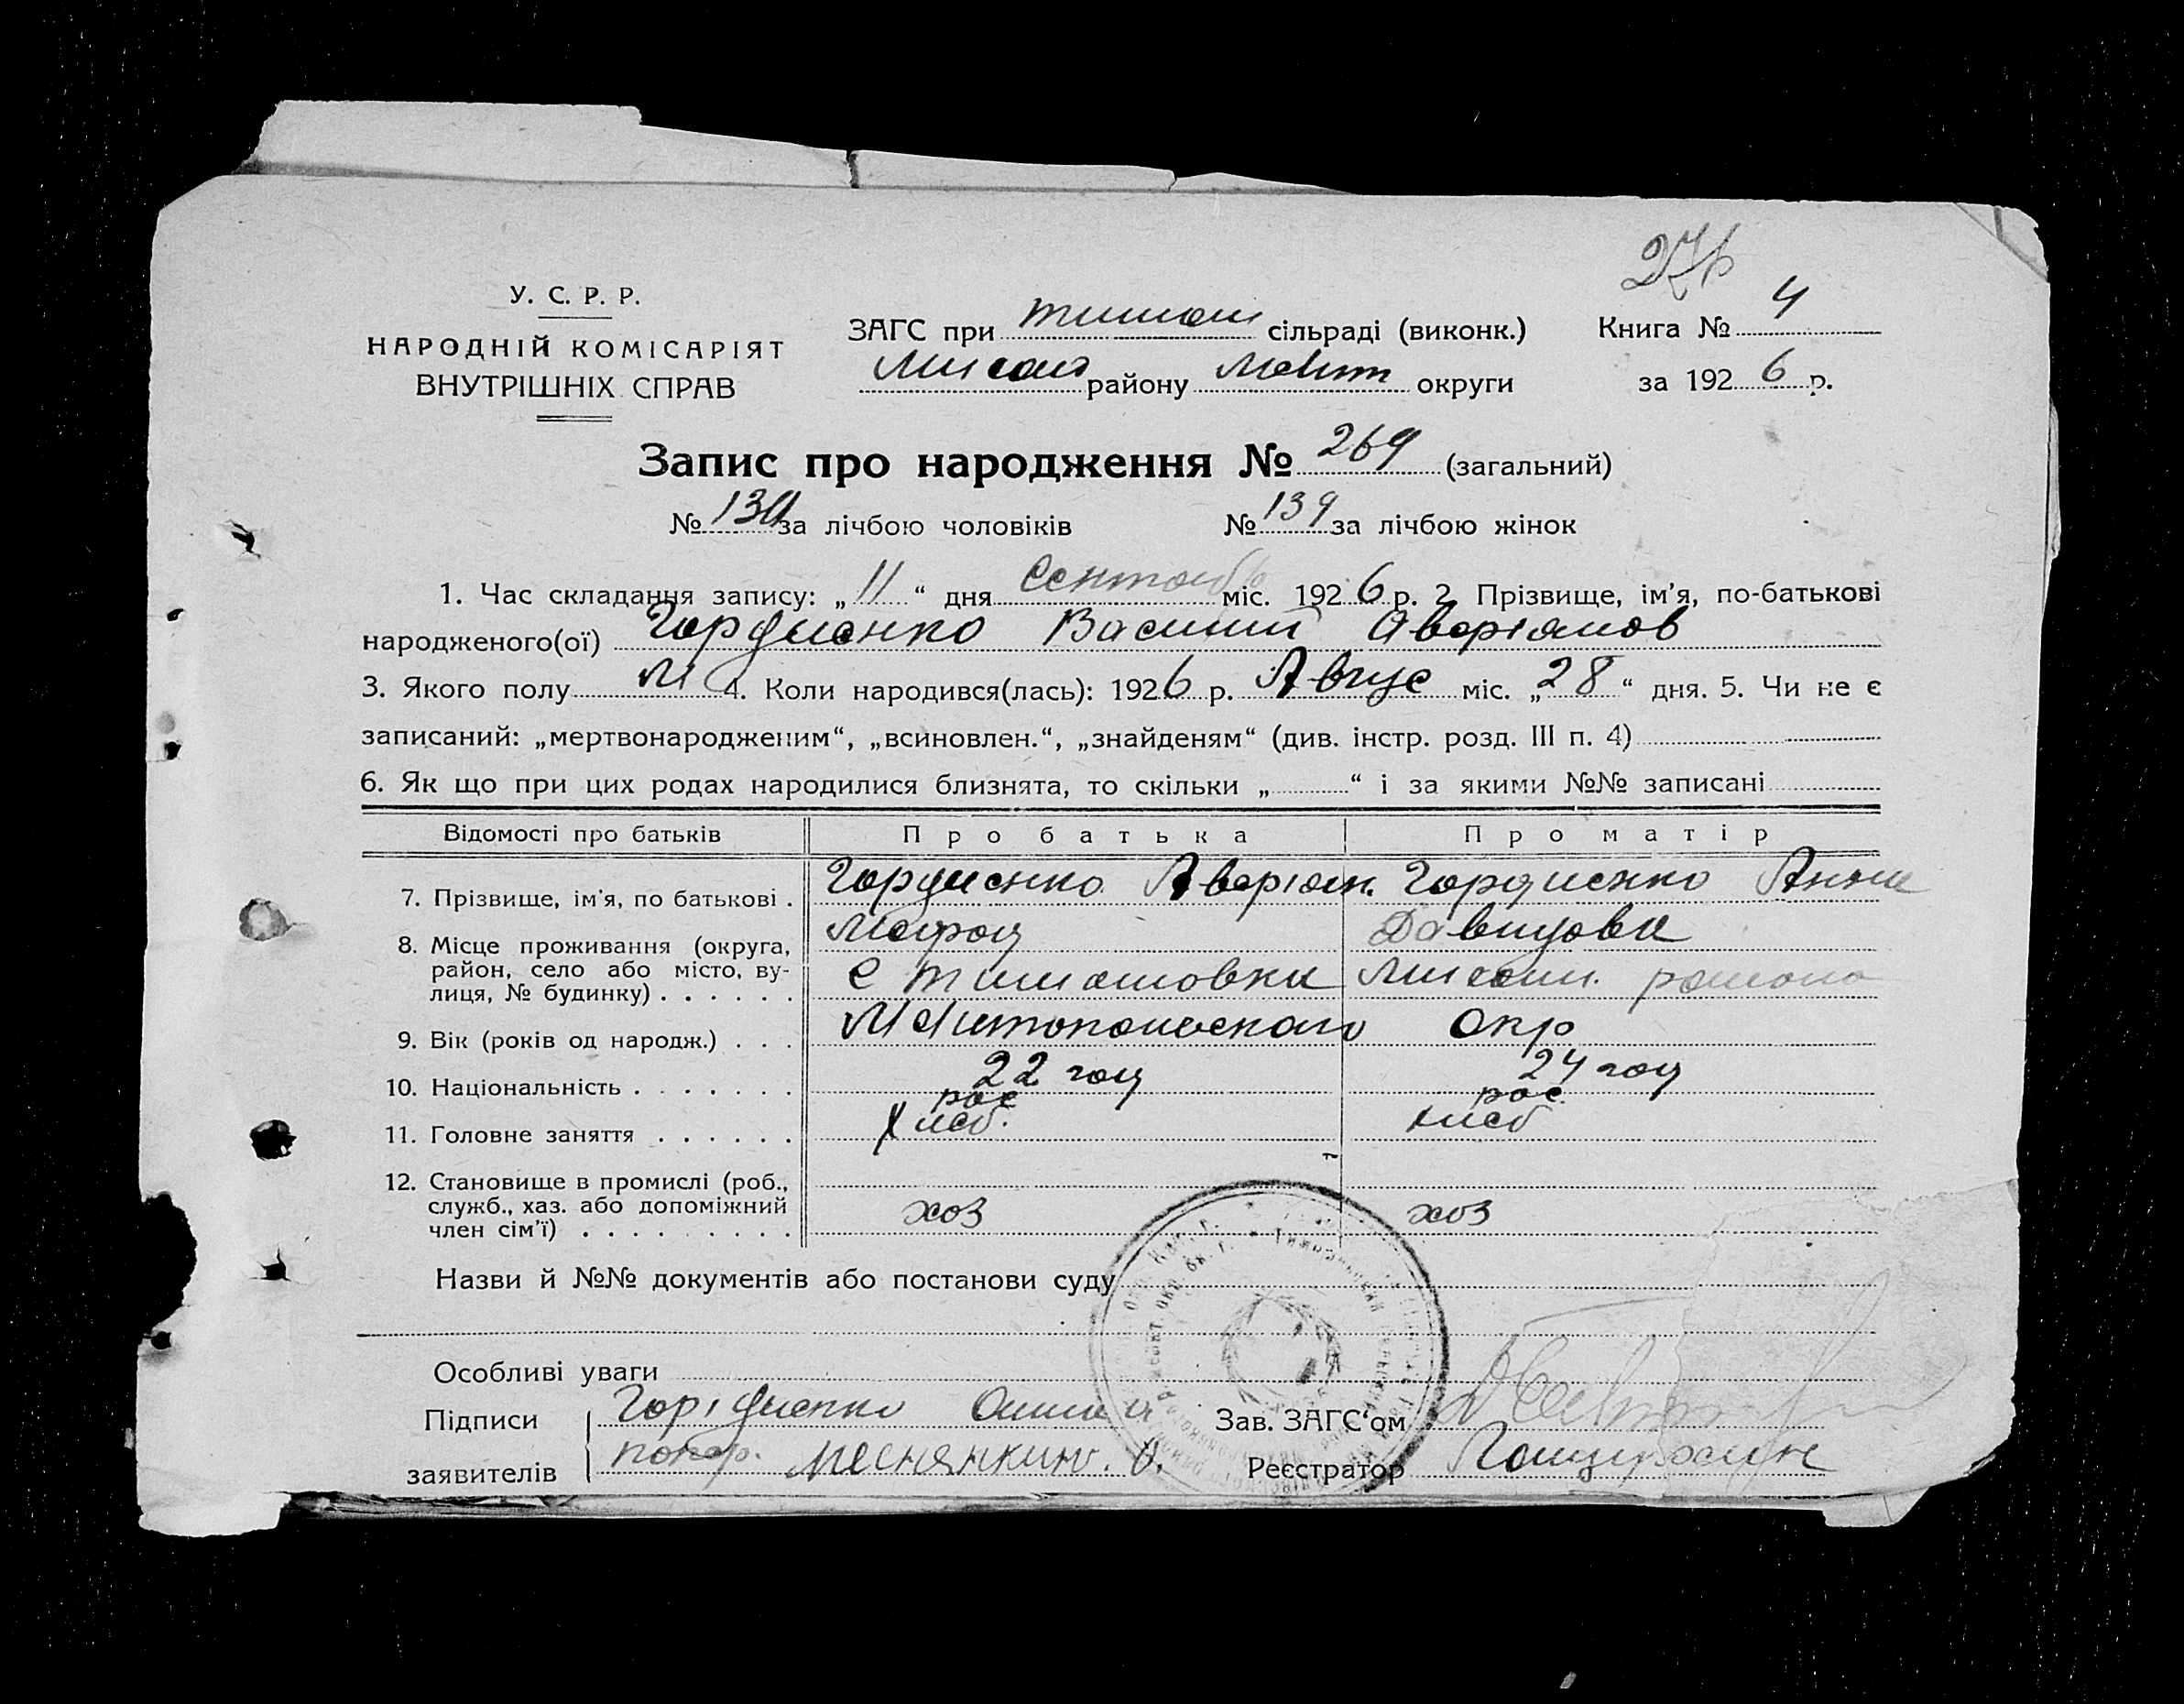 У. С. Р. Р.
НАРОДНІЙ КОМІСАРІЯТ
ВНУТРІШНІХ СПРАВ
ЗАГС при тимош сільраді (виконк.)
Книга № 4
району Меліт округи
за 1926 р.
Запис про народження № 269 (загальний)
№ 130 за лічбою чоловіків № 139 за лічбою жінок
1. Час складання запису: „11“ дня Сентомб міс. 1926 р. 2. Прізвище, ім'я, по-батькові
народженого(ої) Гордиенко Василий Аверіянов
3. Якого полу М 4. Коли народився(лась): 1926 р. Авгус міс. „28“ дня. 5. Чи не є
записаний: „мертвонародженим“, „всиновлен.“, „знайденям“ (див. інстр. розд. III п. 4)
6. Як що при цих родах народилися близнята, то скільки „ “ і за якими №№ записані
Відомості про батьків Про батька Про матір
7. Прізвище, ім'я, по батькові . Гордиенко Аверіян. Гордиенко Анна
Давидовна
8. Місце проживання (округа,
район, село або місто, ву-
лиця, № будинку) . . . . . .
с Тимошовки района
9. Вік (років од народж.) . . . Мелитопольского Окр
22 год 24 год
10. Національність . . . . . . . рос рос.
11. Головне заняття . . . . . . хлеб. хлеб
12. Становище в промислі (роб.,
служб., хаз. або допоміжний
член сім'ї) . . . . . . . . . хоз хоз
Назви й №№ документів або постанови суду
Особливі уваги
Підписи Гордиенко Зав. ЗАГС'ом
заявителів Реєстратор